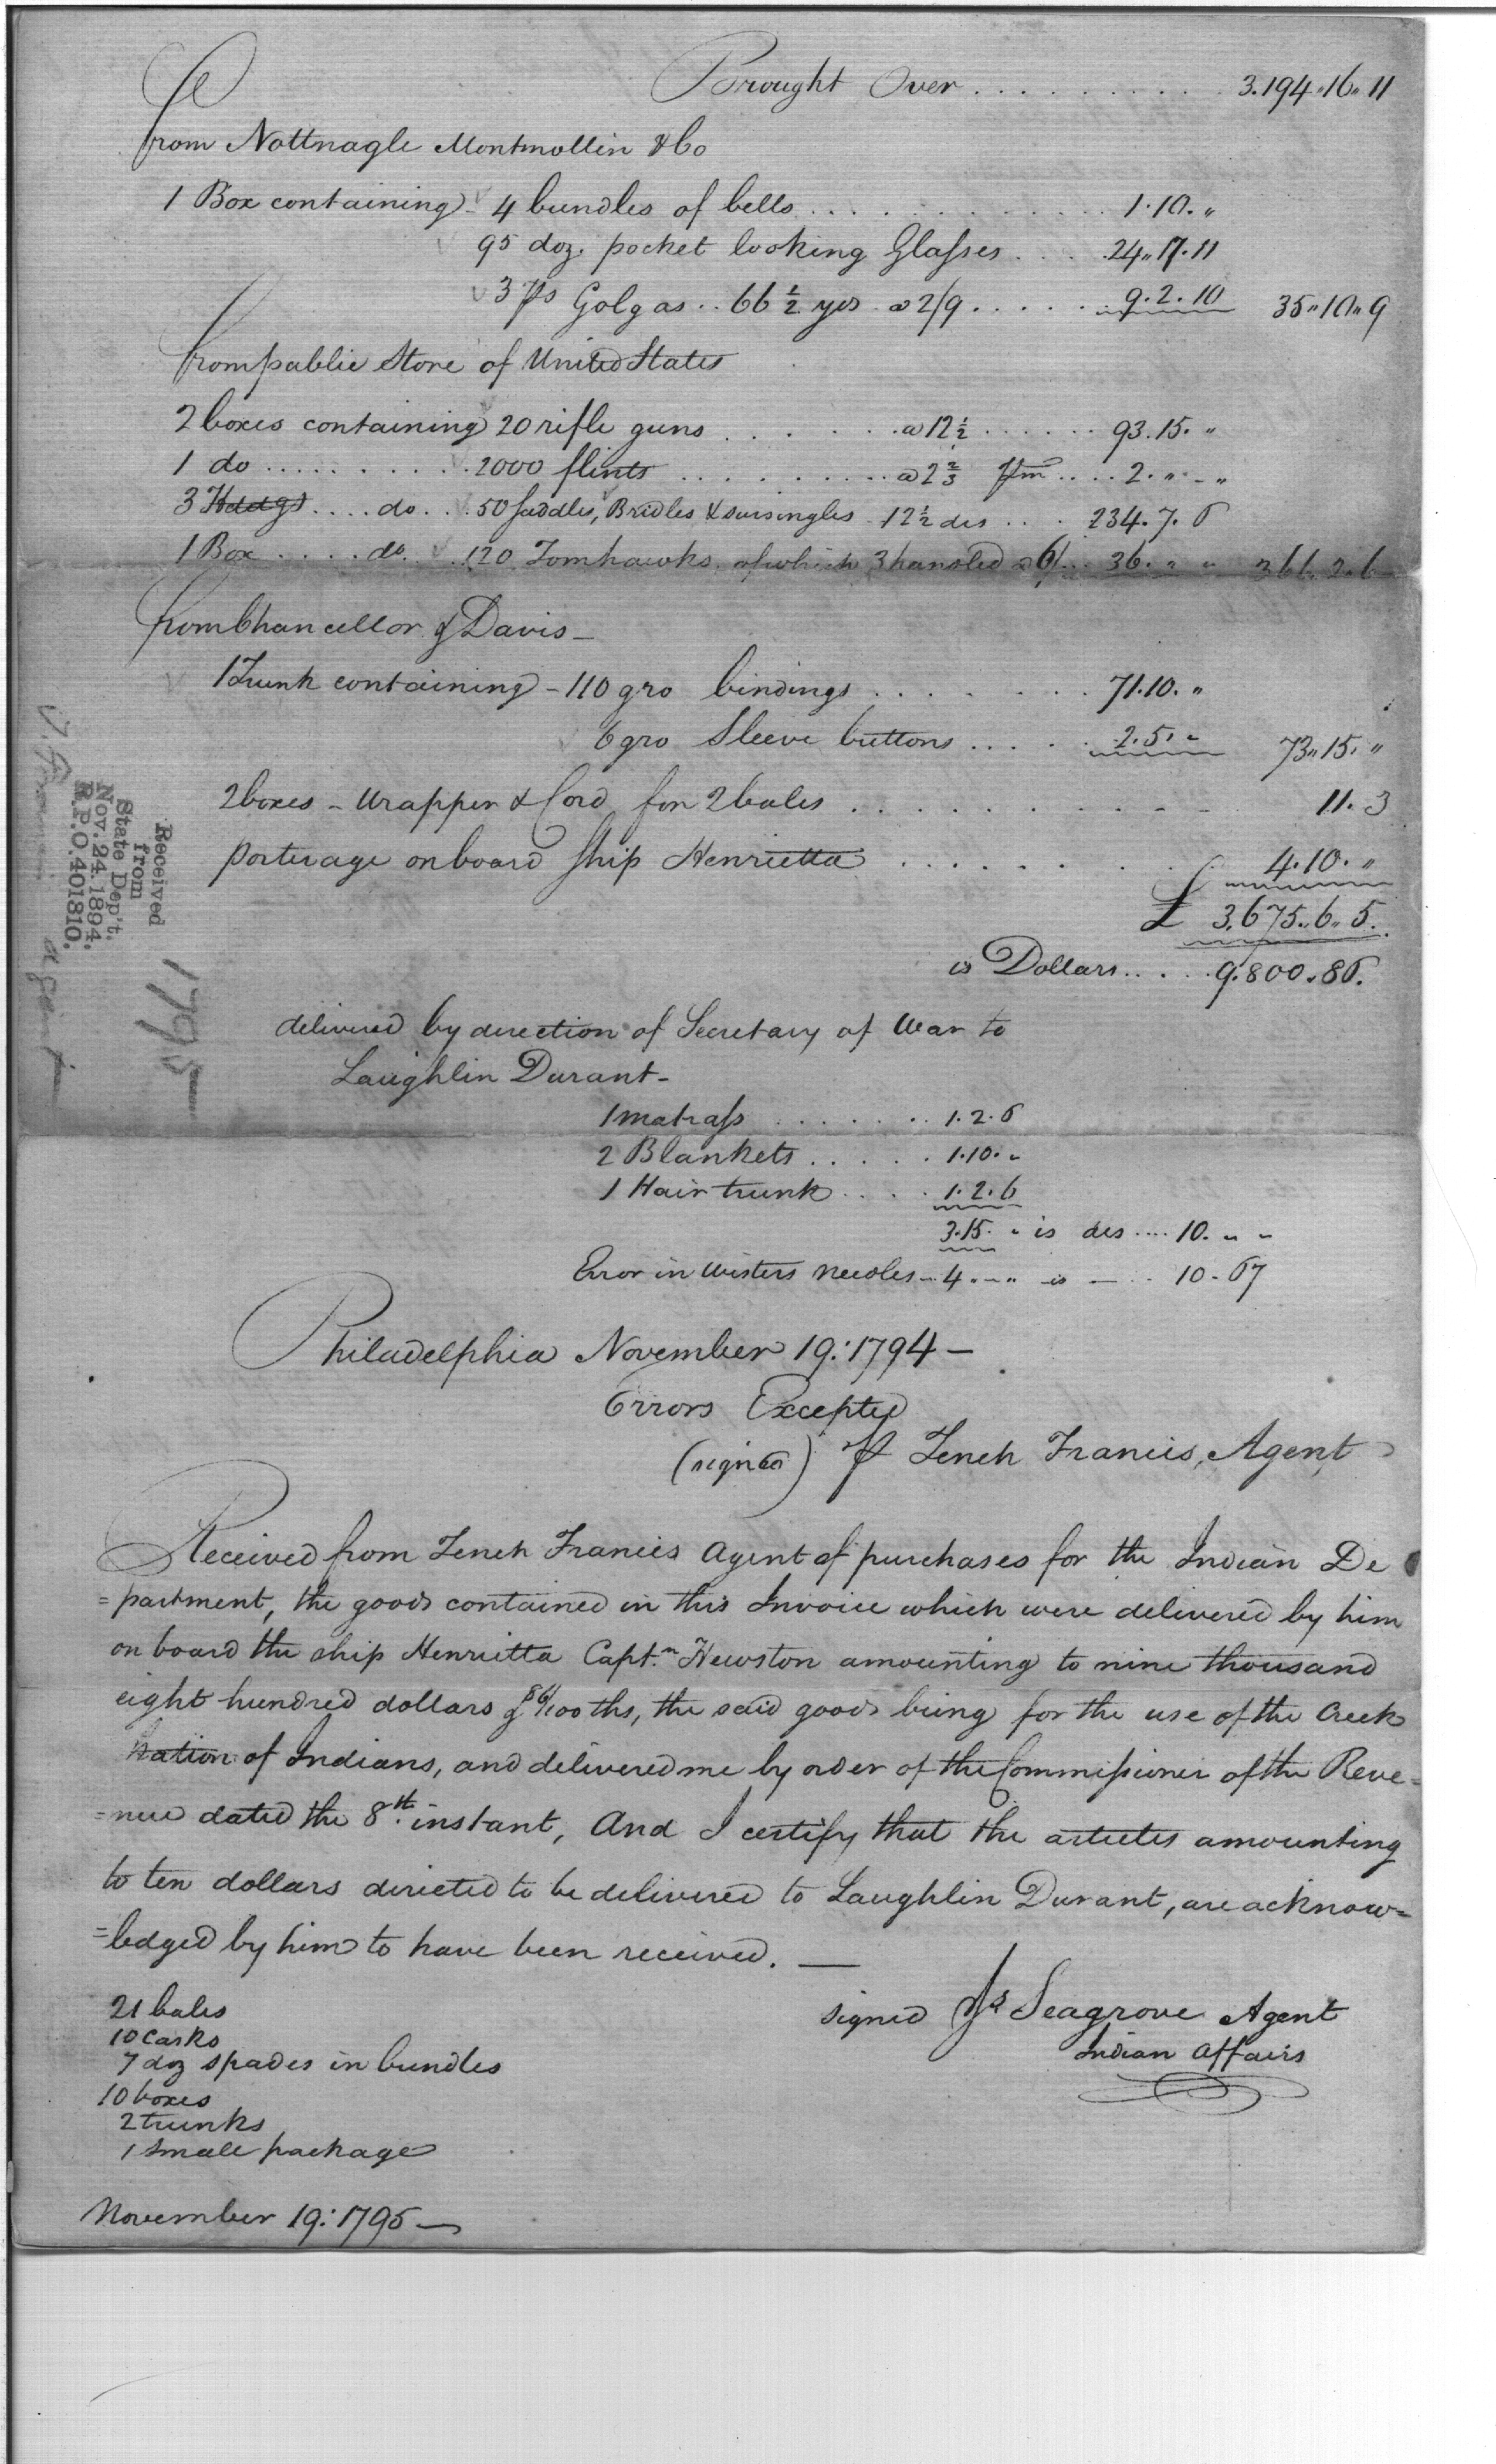 Brought Over . . . . . . . . . . 3.194..16..11
From Nottnagle Montmollin & Co
1 Box containing - 4 bundles of bells . . . . . . . . . . 1.10. "
95 doz. pocket looking Glasses . . . . 24.. 17. 11
3 ps Golgas .. 66 1/2 yds a 2/9 . . . . . 9. 2. 10 35..10..9
From public Store of United States
2 boxes containing 20 rifle guns . . . . . . a 12 1/2 . . . . . . 93. 15. "
1 do . . . . . . . . . 2000 flints . . . . . . . . . a 2 2/3 pm . . . . 2. " - "
3 Hddgs . . . . do . . . 50 saddles, Bridles & sursingles 12 1/2 drs . . . 234. 7. 6
1 Box . . . . do . . . 120 Tomhawks of which 3 handled a 6/ . . . 36. " " 366. 2. 6
From Chancellor & Davis -
1 Trunk containing - 110 gro bindings . . . . . . . 71. 10. "
6 gro Sleeve buttons . . . . . 2. 5. " 73.. 15. "
2 boxes - Wrapper & Cord for 2 bales . . . . . . . . . 11. 3
porterage on board Ship Henrietta . . . . . . . . . 4. 10. "
£ 3,675..6..5.
is Dollars . . . . . 9.800.86.
delivered by direction of Secretary of War to
Laughlin Durant -
1 matrass . . . . . . . . 1. 2. 6
2 Blankets . . . . . 1. 10. "
1 Hair trunk . . . . 1. 2. 6
3. 15. " is drs .... 10. " "
Error in Wisters needles -- 4 " - " is - . . 10 - 67
Philadelphia November 19: 1794 -
Errors Excepted
(signed) Tench Francis, Agent
Received from Tench Francis Agent of purchases for the Indian De
=partment, the goods contained in this Invoice which were delivered by him
on board the ship Henrietta Captn. Hewston amounting to nine thousand
eight hundred dollars & 86/100 ths, the said goods being for the use of the Creek
Nation of Indians, and delivered me by order of the Commissioner of the Reve=
=nue dated the 8th. instant, And I certify that the articles amounting
to ten dollars directed to be delivered to Laughlin Durant, are acknow=
=ledged by him to have been received. —
signed Js Seagrove Agent
Indian Affairs
21 bales
10 Casks
7 doz spades in bundles
10 boxes
2 trunks
1 Small package
November 19: 1795 -
Received
from
State Dep't.
Nov. 24. 1894.
R.P.O. 401810.
1795